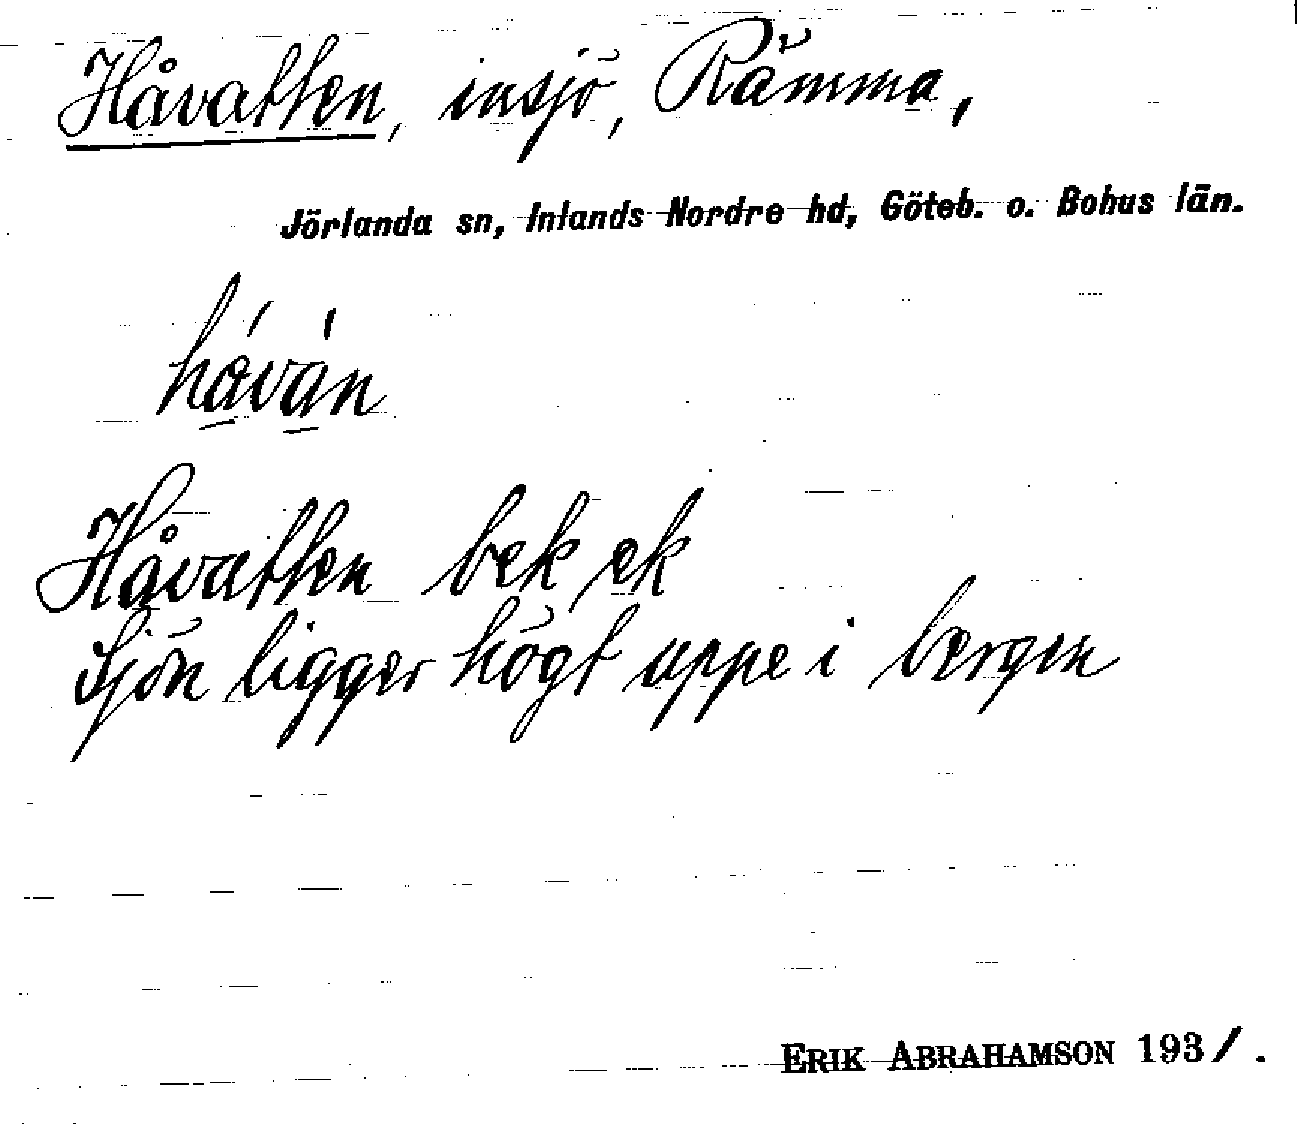 Håvatten, insjö, Rämma,
Jörlanda sn, Inlands Nordre hd, Göteb. o. Bohus län.
håván
Håvatten bek ek
Sjön ligger högt uppe i bergen
ERIK ABRAHAMSON 193/.